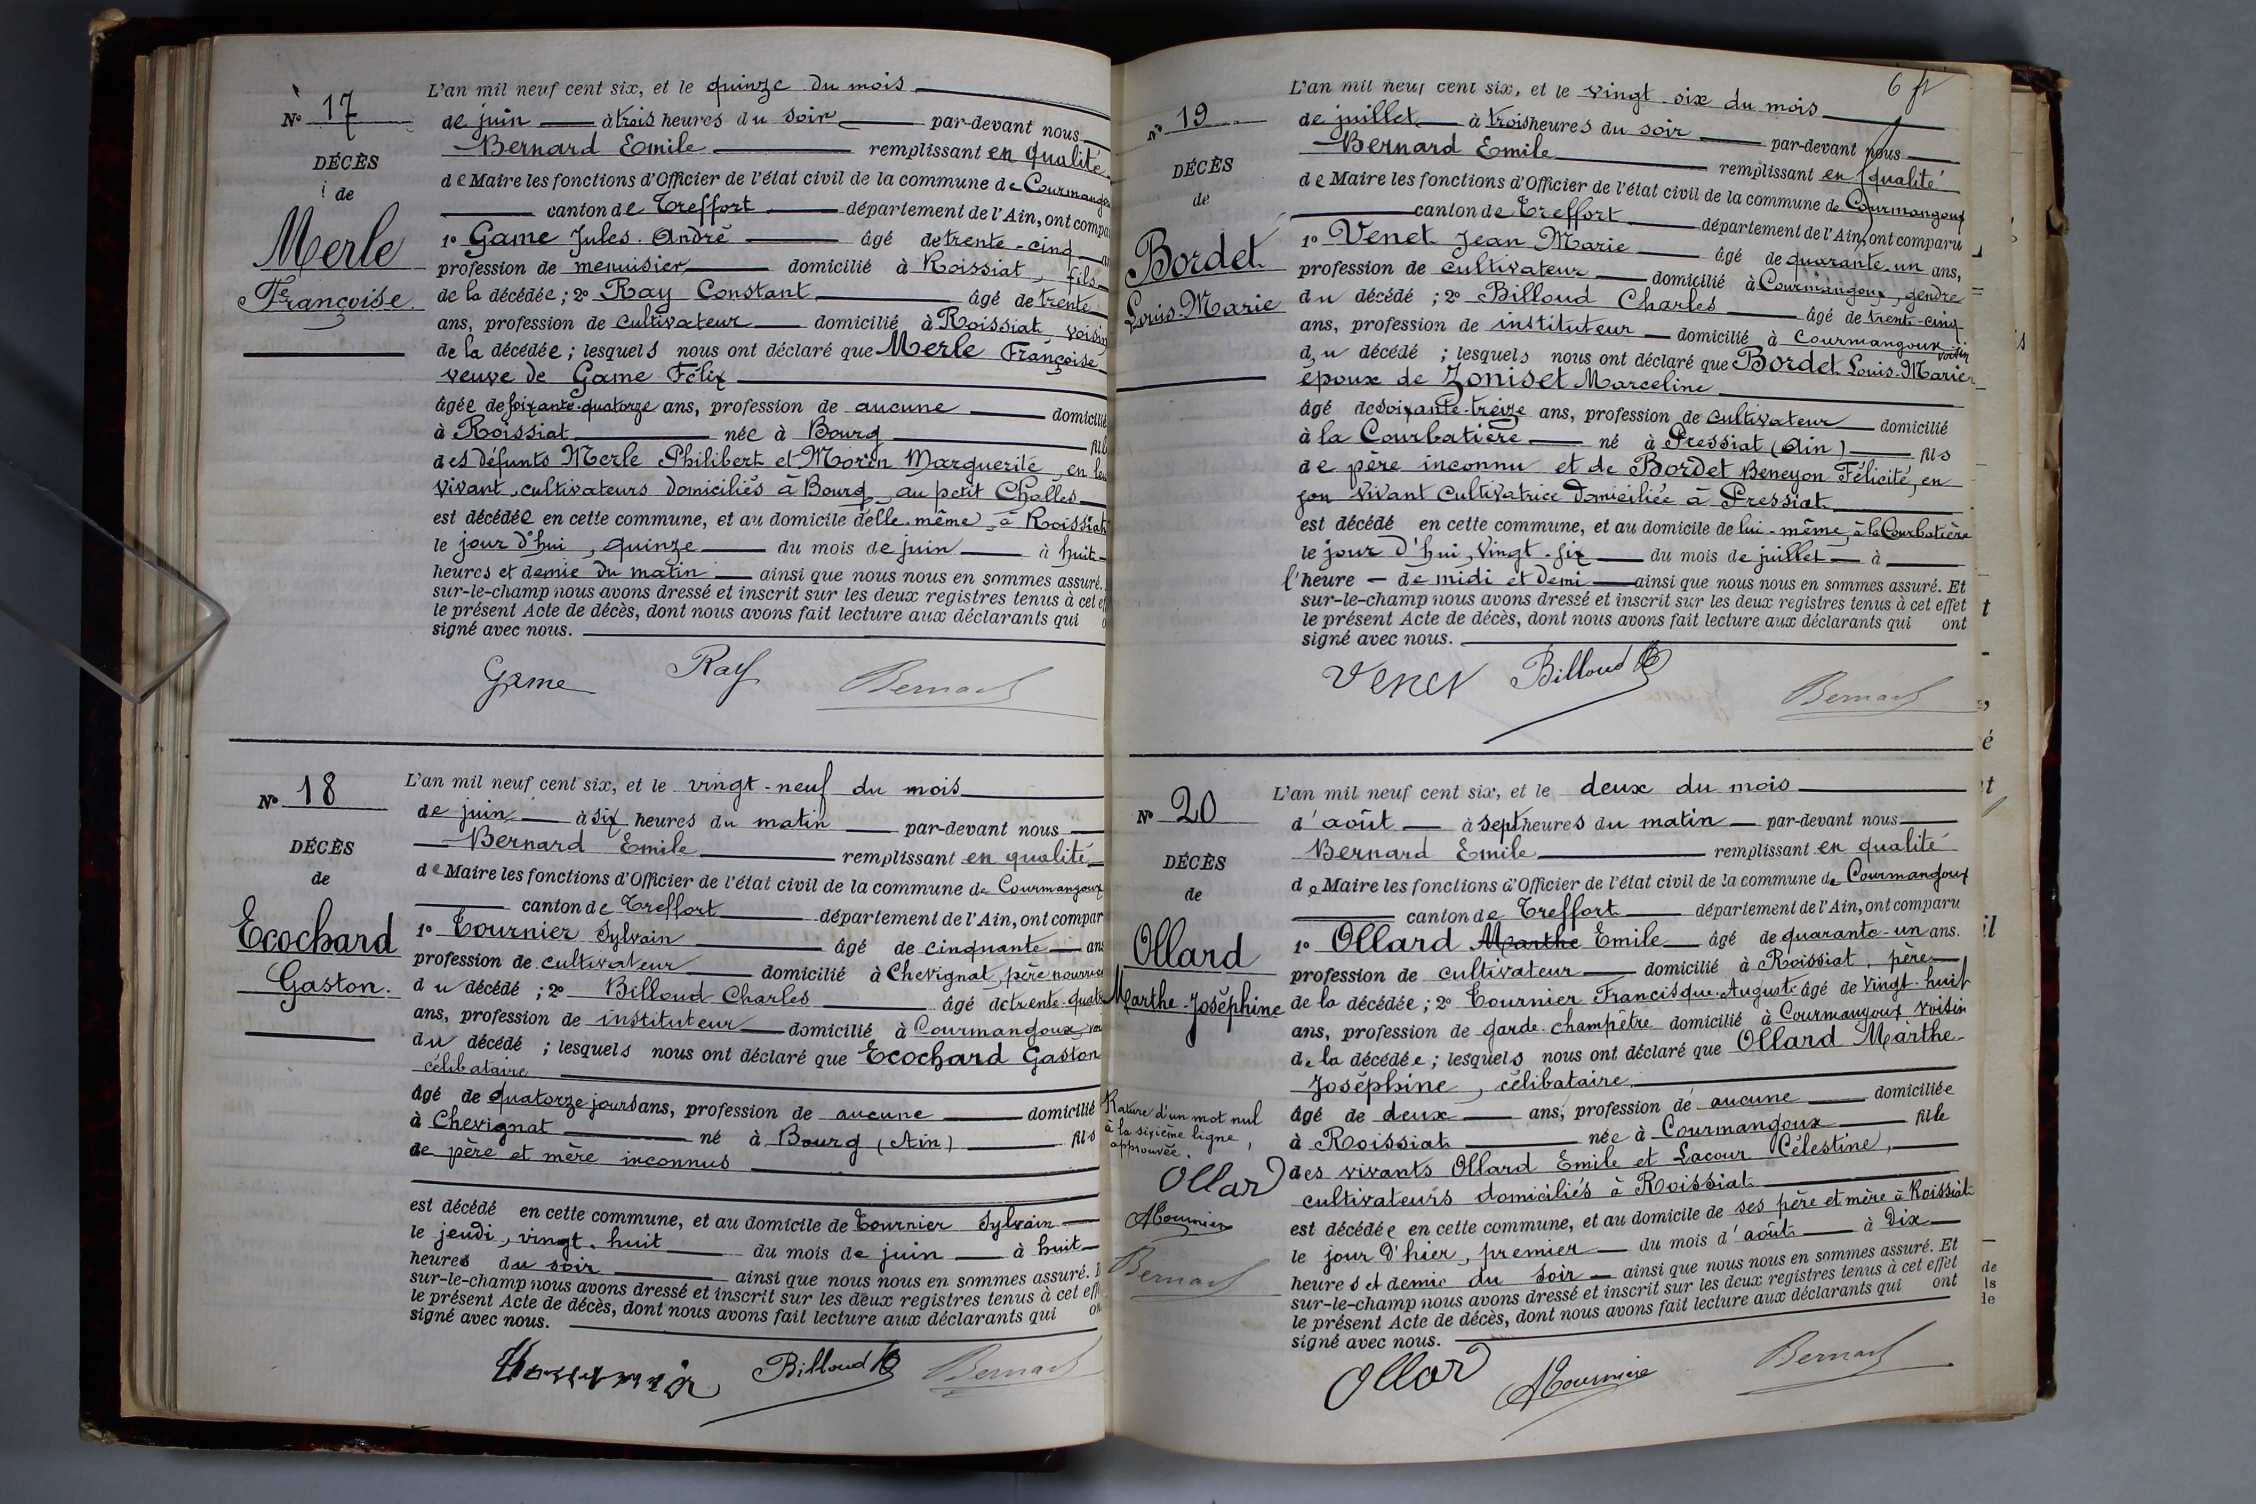 L'an mil neuf cent six, et le quinze du mois
N° 17
de juin à trois heures du soir par-devant nous
Bernard Emile remplissant en qualité
DÉCÈS
de Maire les fonctions d'Officier de l'état civil de la commune de Courmangoux
de
canton de Treffort département de l'Ain, ont compa
Merle
1° Game Jules André âgé de trente-cinq
profession de menuisier domicilié à Roissiat, fils
Françoise
de la décédée ; 2° Ray Constant âgé de trente
ans, profession de cultivateur domicilié à Roissiat voisin
de la décédée ; lesquels nous ont déclaré que Merle Françoise
veuve de Game Félix
âgée de soixante-quatorze ans, profession de aucune domicilié
à Roissiat née à Bourg fill
des défunts Merle Philibert et Morin Marguerite, en leu
vivant, cultivateurs domiciliés à Bourg, au petit Challes
est décédée en cette commune, et au domicile d'elle-même, à Roissiat
le jour d'hui, quinze du mois de juin à huit
heures et demie du matin ainsi que nous nous en sommes assuré.
sur-le-champ nous avons dressé et inscrit sur les deux registres tenus à cet ef
le présent Acte de décès, dont nous avons fait lecture aux déclarants qui o
signé avec nous.
Game Ray Bernard
L'an mil neuf cent six, et le vingt-neuf du mois
N° 18
de juin à six heures du matin par-devant nous
Bernard Emile remplissant en qualité
DÉCÈS
de Maire les fonctions d'Officier de l'état civil de la commune de Courmangoux
de
canton de Treffort département de l'Ain, ont compar
Ecochard
1° Tournier Sylvain âgé de cinquante ans
profession de cultivateur domicilié à Chevignat, père nourricier
Gaston.
du décédé ; 2° Billoud Charles âgé de trente-quatr
ans, profession de instituteur domicilié à Courmangoux, voi
du décédé ; lesquels nous ont déclaré que Ecochard Gaston
célibataire
âgé de quatorze jours ans, profession de aucune domicilié
à Chevignat né à Bourg (Ain) fils
de père et mère inconnus
est décédé en cette commune, et au domicile de Tournier Sylvain
le jeudi, vingt-huit du mois de juin à huit
heures du soir ainsi que nous nous en sommes assuré. E
sur-le-champ nous avons dressé et inscrit sur les deux registres tenus à cet eff
le présent Acte de décès, dont nous avons fait lecture aux déclarants qui on
signé avec nous.
Billoud Bernard
6
L'an mil neuf cent six, et le vingt-six du mois
N° 19
de juillet à trois heures du soir par-devant nous
Bernard Emile remplissant en qualité
DÉCÈS
de Maire les fonctions d'Officier de l'état civil de la commune de Courmangoux
de
canton de Treffort département de l'Ain, ont comparu
Bordet
1° Venet Jean Marie âgé de quarante-un ans,
profession de cultivateur domicilié à Courmangoux, gendre
Louis-Marie
du décédé ; 2° Billoud Charles âgé de trente-cinq
ans, profession de instituteur domicilié à Courmangoux voisin
du décédé ; lesquels nous ont déclaré que Bordet Louis-Marie
époux de Zoniset Marceline
âgé de soixante-treize ans, profession de cultivateur domicilié
à la Courbatière né à Pressiat (Ain) fils
de père inconnu et de Bordet Beneyon Félicité, en
son vivant cultivatrice domiciliée à Pressiat
est décédé en cette commune, et au domicile de lui-même, à la Courbatière
le jour d'hui, vingt-six du mois de juillet à
l'heure de midi et demi ainsi que nous nous en sommes assuré. Et
sur-le-champ nous avons dressé et inscrit sur les deux registres tenus à cet effet
le présent Acte de décès, dont nous avons fait lecture aux déclarants qui ont
signé avec nous.
Venet Billoud Bernard
L'an mil neuf cent six, et le deux du mois
N° 20
d'août à sept heures du matin par-devant nous
Bernard Emile remplissant en qualité
DÉCÈS
de Maire les fonctions d'Officier de l'état civil de la commune de Courmangoux
de
canton de Treffort département de l'Ain, ont comparu
Ollard
1° Ollard Marthe Emile âgé de quarante-un ans.
profession de cultivateur domicilié à Roissiat, père
Marthe-Joséphine
de la décédée ; 2° Tournier Francisque-Auguste âgé de vingt-huit
ans, profession de garde-champêtre domicilié à Courmangoux voisin
de la décédée ; lesquels nous ont déclaré que Ollard Marthe-
Joséphine, célibataire
âgé de deux ans, profession de aucune domiciliée
à Roissiat née à Courmangoux fille
des vivants Ollard Emile et Lacour Célestine,
cultivateurs domiciliés à Roissiat
est décédée en cette commune, et au domicile de ses père et mère à Roissiat
le jour d'hier, premier du mois d'août à dix
heures et demie du soir ainsi que nous nous en sommes assuré. Et
sur-le-champ nous avons dressé et inscrit sur les deux registres tenus à cet effet
le présent Acte de décès, dont nous avons fait lecture aux déclarants qui ont
signé avec nous.
Rature d'un mot nul
à la sixième ligne,
approuvée.
Ollard
ATournier
Bernard
Ollard ATournier Bernard